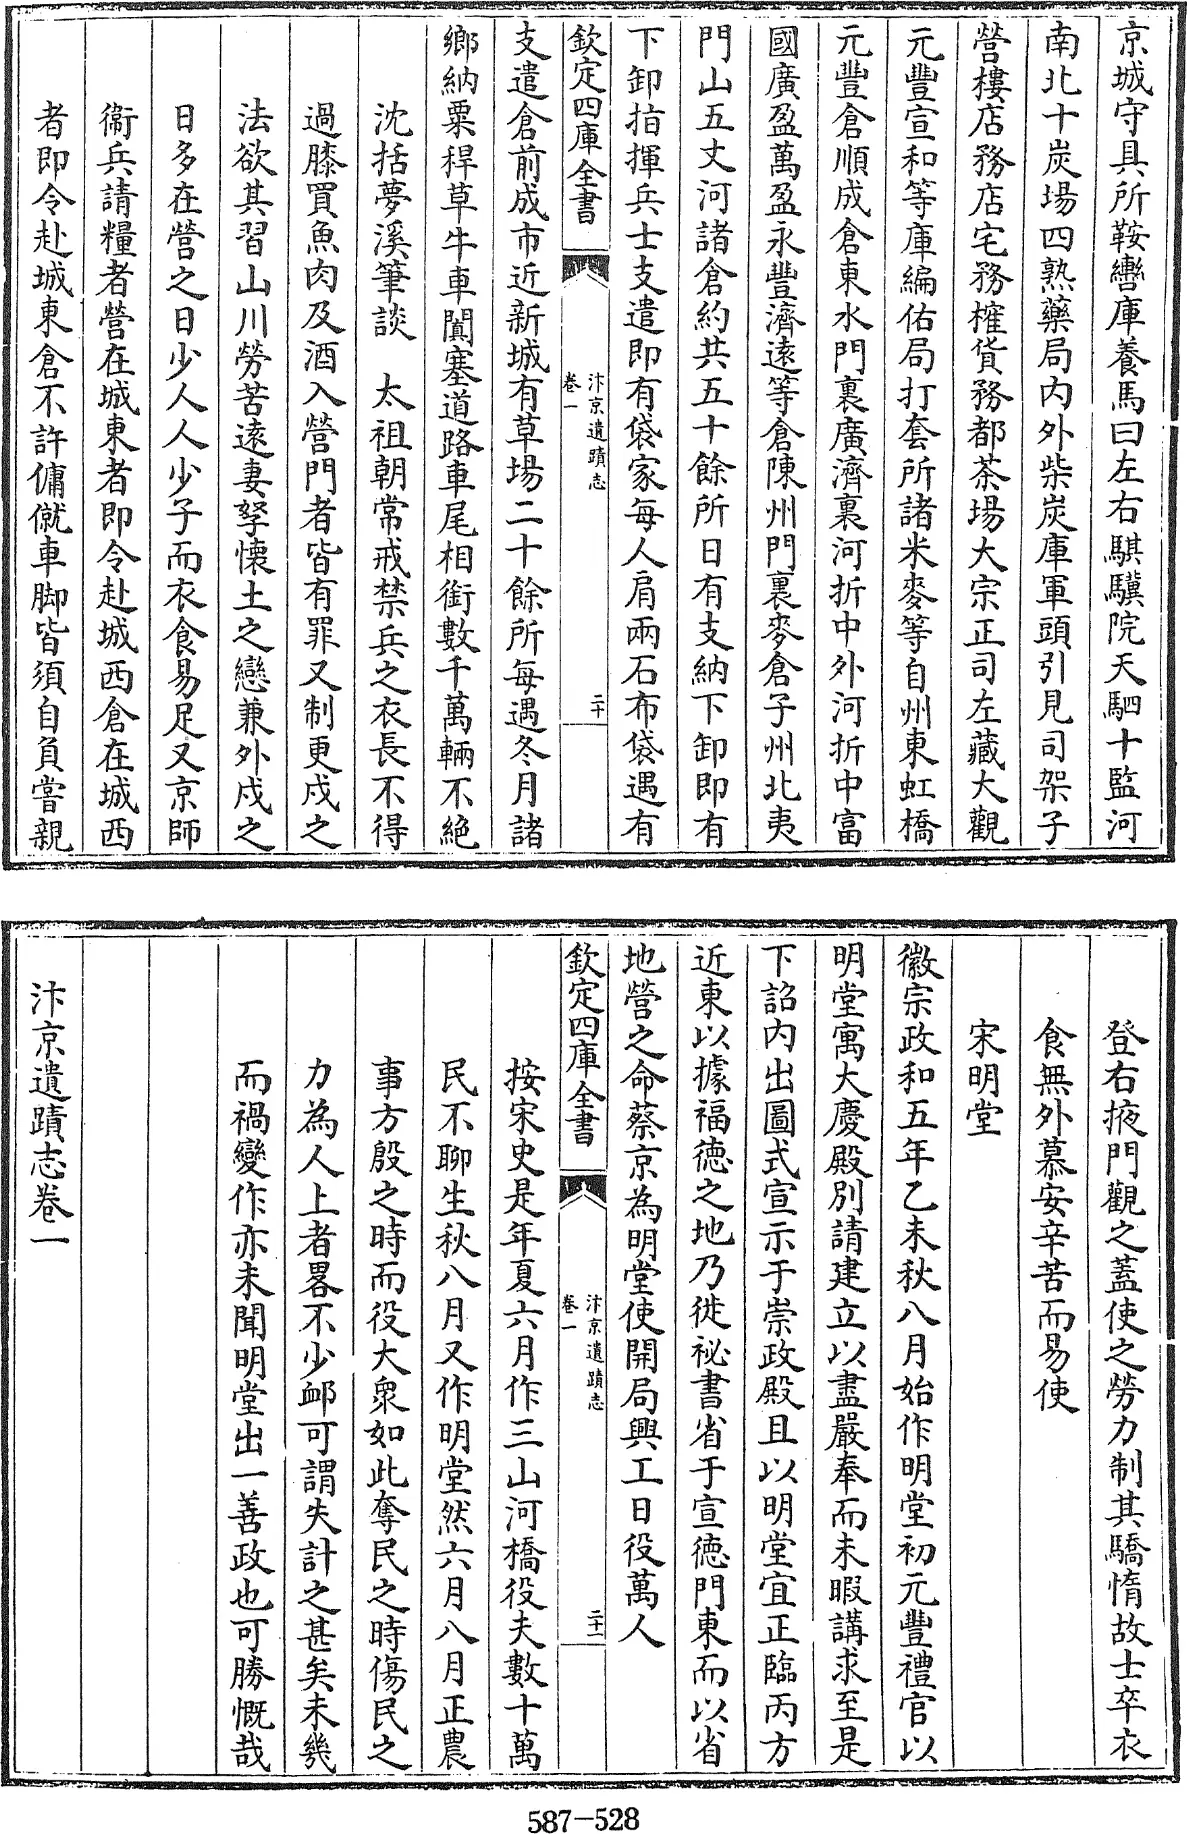 京城守具所鞍轡庫養馬曰左右騏驥院天駟十監河
南北十炭場四熟藥局内外柴炭庫軍頭引見司架子
營樓店務店宅務榷貨務都茶場大宗正司左藏大觀
元豐宣和等庫編佑局打套所諸米麥等自州東虹橋
元豐倉順成倉東水門裏廣濟裏河折中外河折中富
國廣盈萬盈永豐濟遠等倉陳州門裏麥倉子州北夷
門山五丈河諸倉約共五十餘所日有支納下卸即有
下卸指揮兵士支遣即有袋家每人肩兩石布袋遇有
欽定四庫全書
汴京遺蹟志
卷一
二十
支遣倉前成市近新城有草場二十餘所每遇冬月諸
鄉納粟稈草牛車闐塞道路車尾相銜數千萬輛不絶
沈括夢溪筆談 太祖朝常戒禁兵之衣長不得
過膝買魚肉及酒入營門者皆有罪又制更戍之
法欲其習山川勞苦遠妻孥懷土之戀兼外戍之
日多在營之日少人人少子而衣食易足又京師
衞兵請糧者營在城東者即令赴城西倉在城西
者即令赴城東倉不許傭僦車脚皆須自負嘗親
登右掖門觀之蓋使之勞力制其驕惰故士卒衣
食無外慕安辛苦而易使
宋明堂
徽宗政和五年乙未秋八月始作明堂初元豐禮官以
明堂寓大慶殿別請建立以盡嚴奉而未暇講求至是
下詔内出圖式宣示于崇政殿且以明堂宜正臨丙方
近東以據福德之地乃徙祕書省于宣德門東而以省
地營之命蔡京為明堂使開局興工日役萬人
欽定四庫全書
汴京遺蹟志
卷一
二十一
按宋史是年夏六月作三山河橋役夫數十萬
民不聊生秋八月又作明堂然六月八月正農
事方殷之時而役大衆如此奪民之時傷民之
力為人上者畧不少卹可謂失計之甚矣未幾
而禍變作亦未聞明堂出一善政也可勝慨哉
汴京遺蹟志卷一
587-528